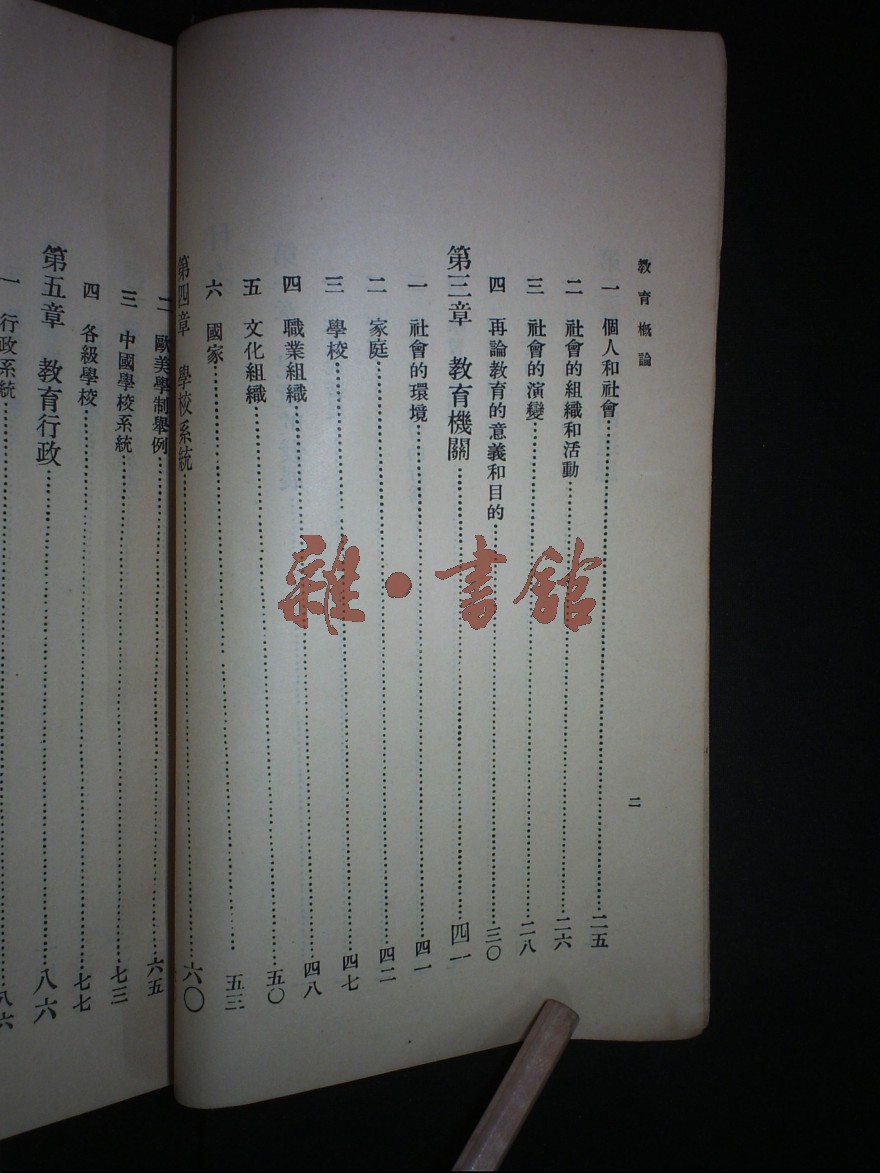 教育概論
二
一　個人和社會……二五
二　社會的組織和活動……二六
三　社會的演變……二八
四　再論教育的意義和目的……三〇
第三章　教育機關……四一
一　社會的環境……四一
二　家庭……四二
三　學校……四七
四　職業組織……四八
五　文化組織……五〇
六　國家……五三
第四章　學校系統……六〇
二　歐美學制舉例……六五
三　中國學校系統……七三
四　各級學校……七七
第五章　教育行政……八六
一　行政系統……八六
雜·書館